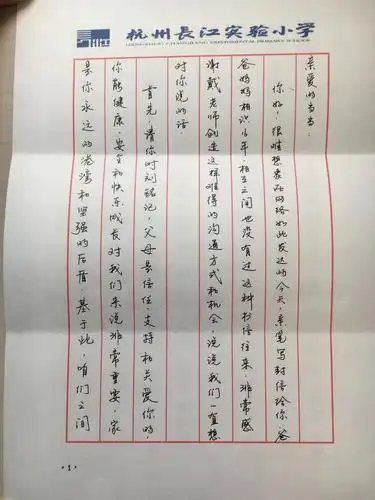 杭州長江实验小学
HANGZHOU CHANGJIANG EXPERIMENTAL PRIMARY SCHOOL
亲爱的当当：
你好！很难想象在网络如此发达的今天，亲笔写封信给你。爸
爸妈妈相识16年，相互之间也没有过这种书信往来，非常感
谢戴老师创造这样难得的沟通方式和机会，说说我们一直想
对你说的话
首先，请你时刻铭记，父母是信任、支持和关爱你的，
你能健康、安全和快乐成长对我们来说非常重要，家
是你永远的港湾和坚强的后盾。基于此，咱们之间
·1·